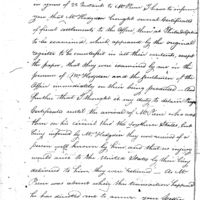 in yours of 22 Instant to Mr Pierce I have to inform
you that Mr Hodgson brought several Certificates
of final settlements to the Office, then in Philadelphia
to be examined, which appeared by the original
register to be counterfeit in all their contents, except
the paper, that they were examined by me in the
presence of Mr Hodgson and the gentlemen of the
Office immediately on their being presented. And
further that I thought it my duty to detain these
Certificates until the arrival of Mr Pierce who was
then on his arrival from the Southern States, but
being informed by Mr Hodgson they were received of a
person well known by him and that no injury
would arise to the United States by their being
delivered to him, they were returned — As Mr
Pierce was absent when this transaction happened
he has desired me to answer your Letter